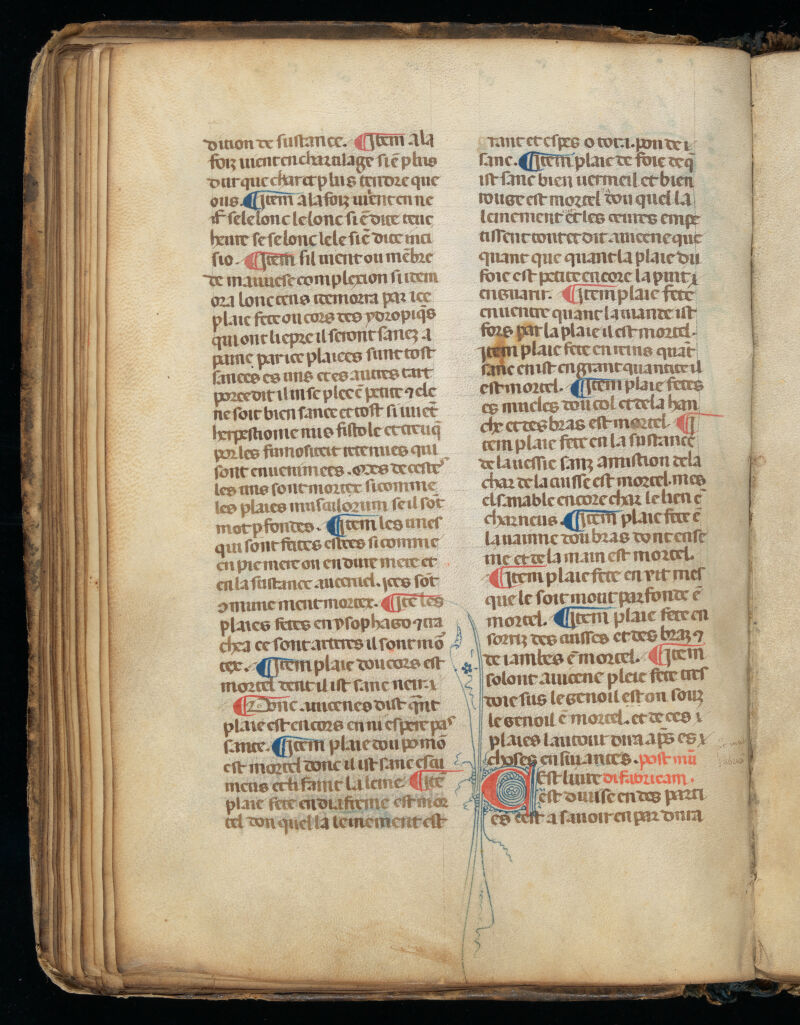 dition de sustance. ¶ Item ala
foiz vient en chartilage si ē plus
dur que char et plus tendre que
ous. ¶ Item ala foiz vient en ne
rf se le lonc le lonc si ē dite teuc
heure se selonc le le si ē dite inci
sio. ¶ Item sil vient ou mēbre
de mauvese complexion si item
ora lonc tens
plaie fete ou cors des ydropiq̄s
qui ont liepre il seront sanez a
paine par ice plaiees sunt tost
sanees es uns et es autres tart
por ce dit il
ne soit bien sanee et tost si vint
herpestiome nus fistole et creuq̄
por les fumositeit retenues qui
sont envenimees. Ores de cestes
les uns sont mortex si comme
les plaies musculorum se il sōt
mot p fondes. ¶ Item les unes
qui sont feites estees si comme
en pie mere ou en dure mere et
en la sustance aucervel. ices sōt
ꝯmune ment mortex. ¶ Itē les
plaies fetes en ysophago ⁊ tra
chea ce sont arteres il sont mō
tex. ¶ Item plaie dou cors est
mortel dont il ist sanc neir. i
¶ Donc avicenes dist qn̄t
plaie est en cors en ni espere pas
sante. ¶ Item plaie dou pomō
est mortel donc il ist sanc escu
meus et li faint la leine ¶ Itē
plaie fete en diafreme est mor
tel don quel la leinement est
tant et espes o tot. i. pou de i
sanc. ¶ Item plaie de foie de q̄
ist sanc bien vermeil et bien
rouge est mortel dou quel la
leinement et les oevres empe
tissent tout et dit avicene que
quant que quant la plaie du
foie est petite encore la puit i
en guarir. ¶ Item plaie fete
en ventre quant la viande ist
fors par la plaie il est mortel.
Item plaie fete en reins quāt
sanc en ist en grant quantite il
est mortel. ¶ Item plaie fetes
es muscles dou col et de la han
che et des bras est mortel ¶ I
tem plaie fete en la sustance
de la vessie sanz amistion de la
char de la cuisse est mortel. mes
el sanable encore char le lien ē
charneus. ¶ Item plaie fete ē
la vainne dou bras dont ense
me et de la main est mortel.
¶ Item plaie fete en vit mes
que le soit mout parfonde ē
mortel. ¶ Item plaie fete en
soriz des cuisses et des braz ⁊
de iambes ē mortel. ¶ Item
solont avicene pleie fete tres
doie sus le genoil est ou souz
le genoil ē mortel. et de ces i
plaies lautour dira ap̄s es x
choses en suiantes. post mū
Cest livre di fabricam.
est divisse en des parti
es cest a savoir en par divia